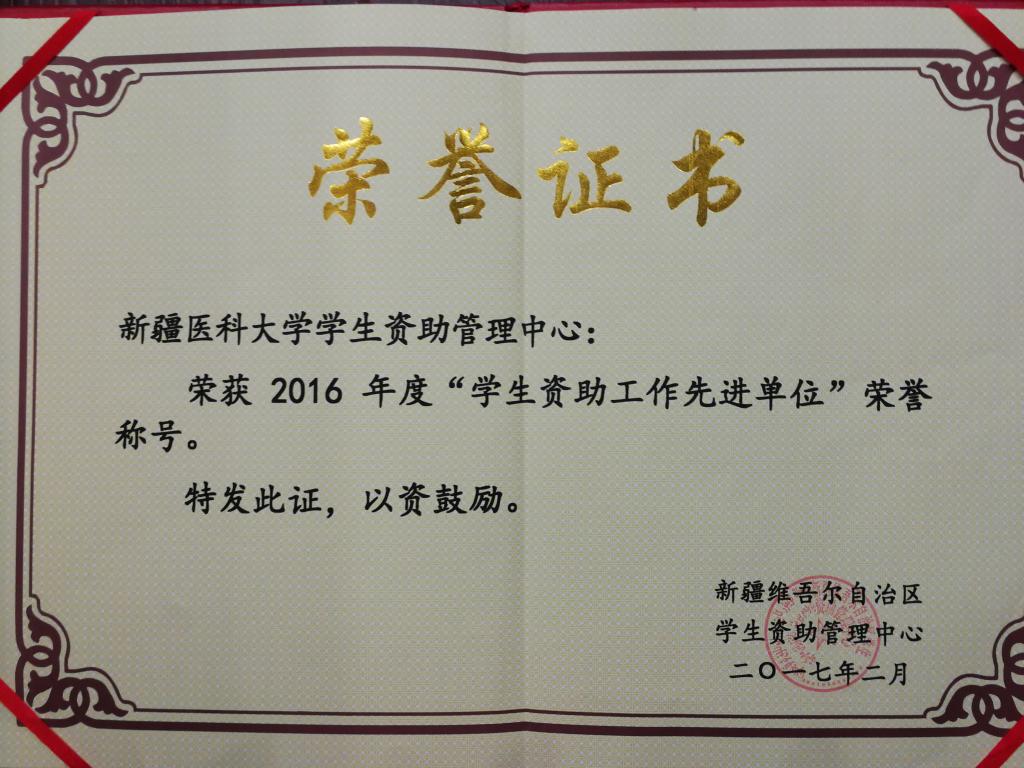 荣誉证书
新疆医科大学学生资助管理中心：
荣获 2016 年度“学生资助工作先进单位”荣誉
称号。
特发此证，以资鼓励。
新疆维吾尔自治区
学生资助管理中心
二〇一七年二月